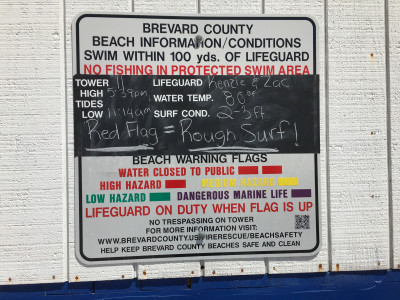 BREVARD COUNTY
BEACH INFORMATION/CONDITIONS
SWIM WITHIN 100 yds. OF LIFEGUARD
NO FISHING IN PROTECTED SWIM AREA
TOWER LIFEGUARD Kenzie & Zac
HIGH 5:29pm WATER TEMP. 80°F
TIDES
LOW 11:14am SURF COND. 2-3ft
Red Flag = Rough Surf!
BEACH WARNING FLAGS
WATER CLOSED TO PUBLIC
HIGH HAZARD MEDIUM HAZARD
LOW HAZARD DANGEROUS MARINE LIFE
LIFEGUARD ON DUTY WHEN FLAG IS UP
NO TRESPASSING ON TOWER
FOR MORE INFORMATION VISIT:
WWW.BREVARDCOUNTY.US/FIRERESCUE/BEACHSAFETY
HELP KEEP BREVARD COUNTY BEACHES SAFE AND CLEAN